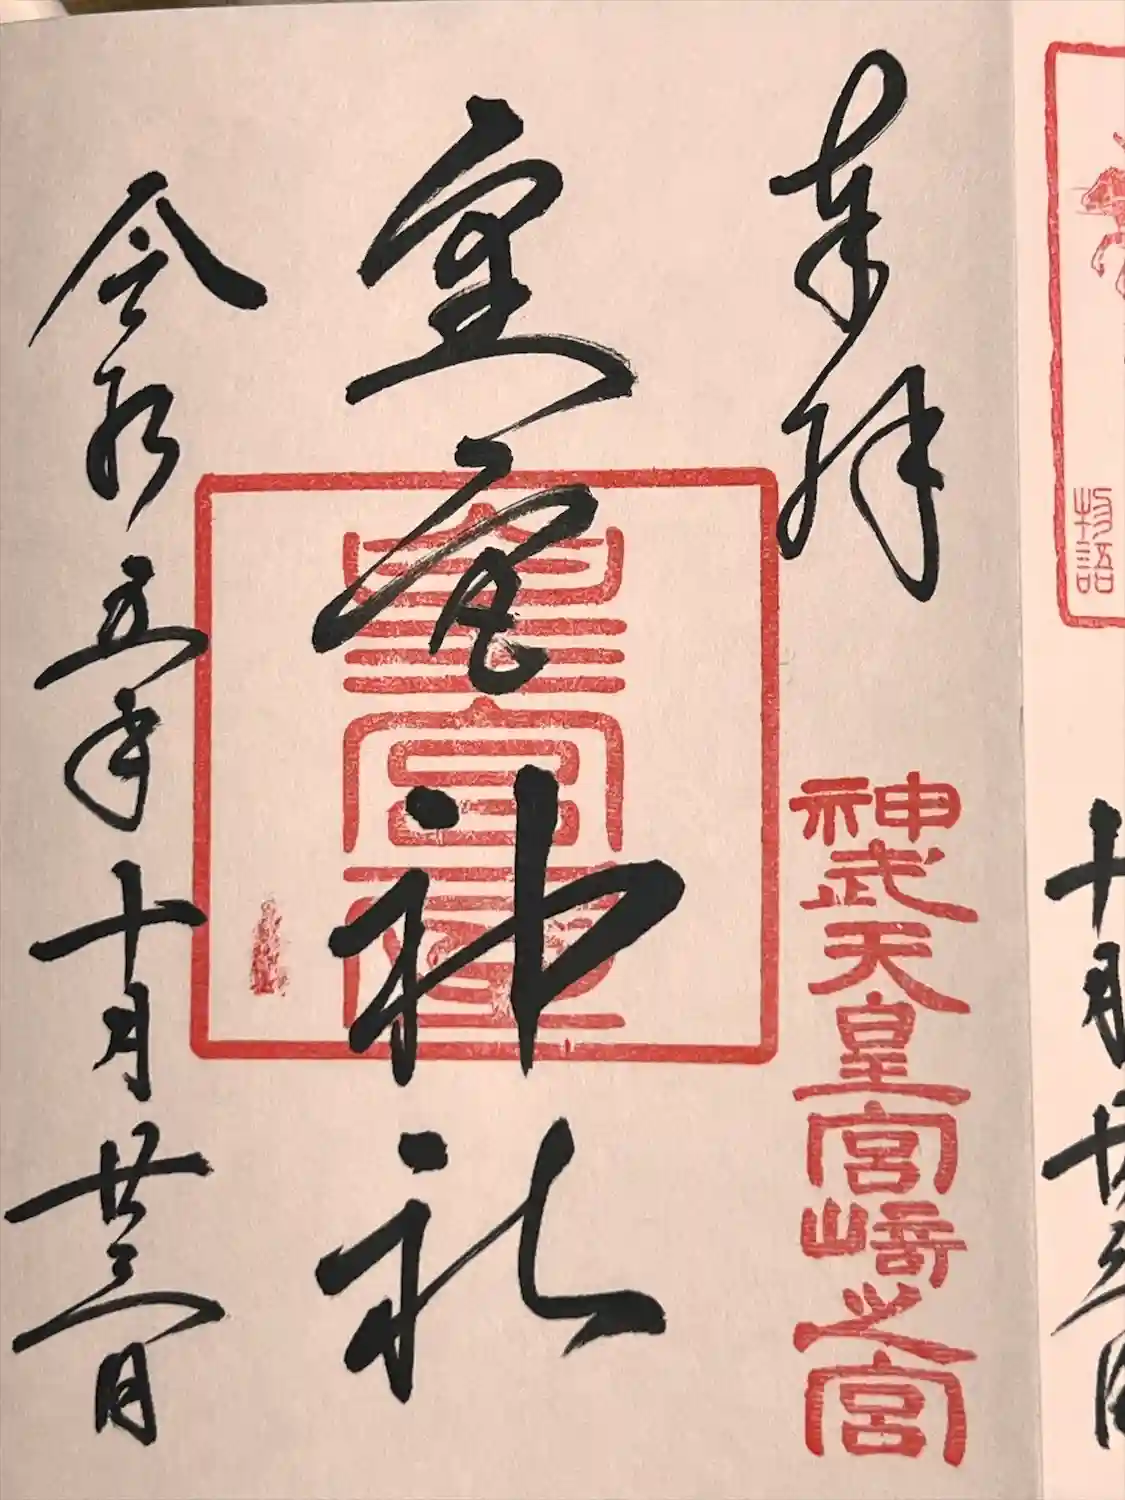 物語
十月廿三日
奉拝
神武天皇宮崎之宮
皇宮神社
令和五年十月廿三日